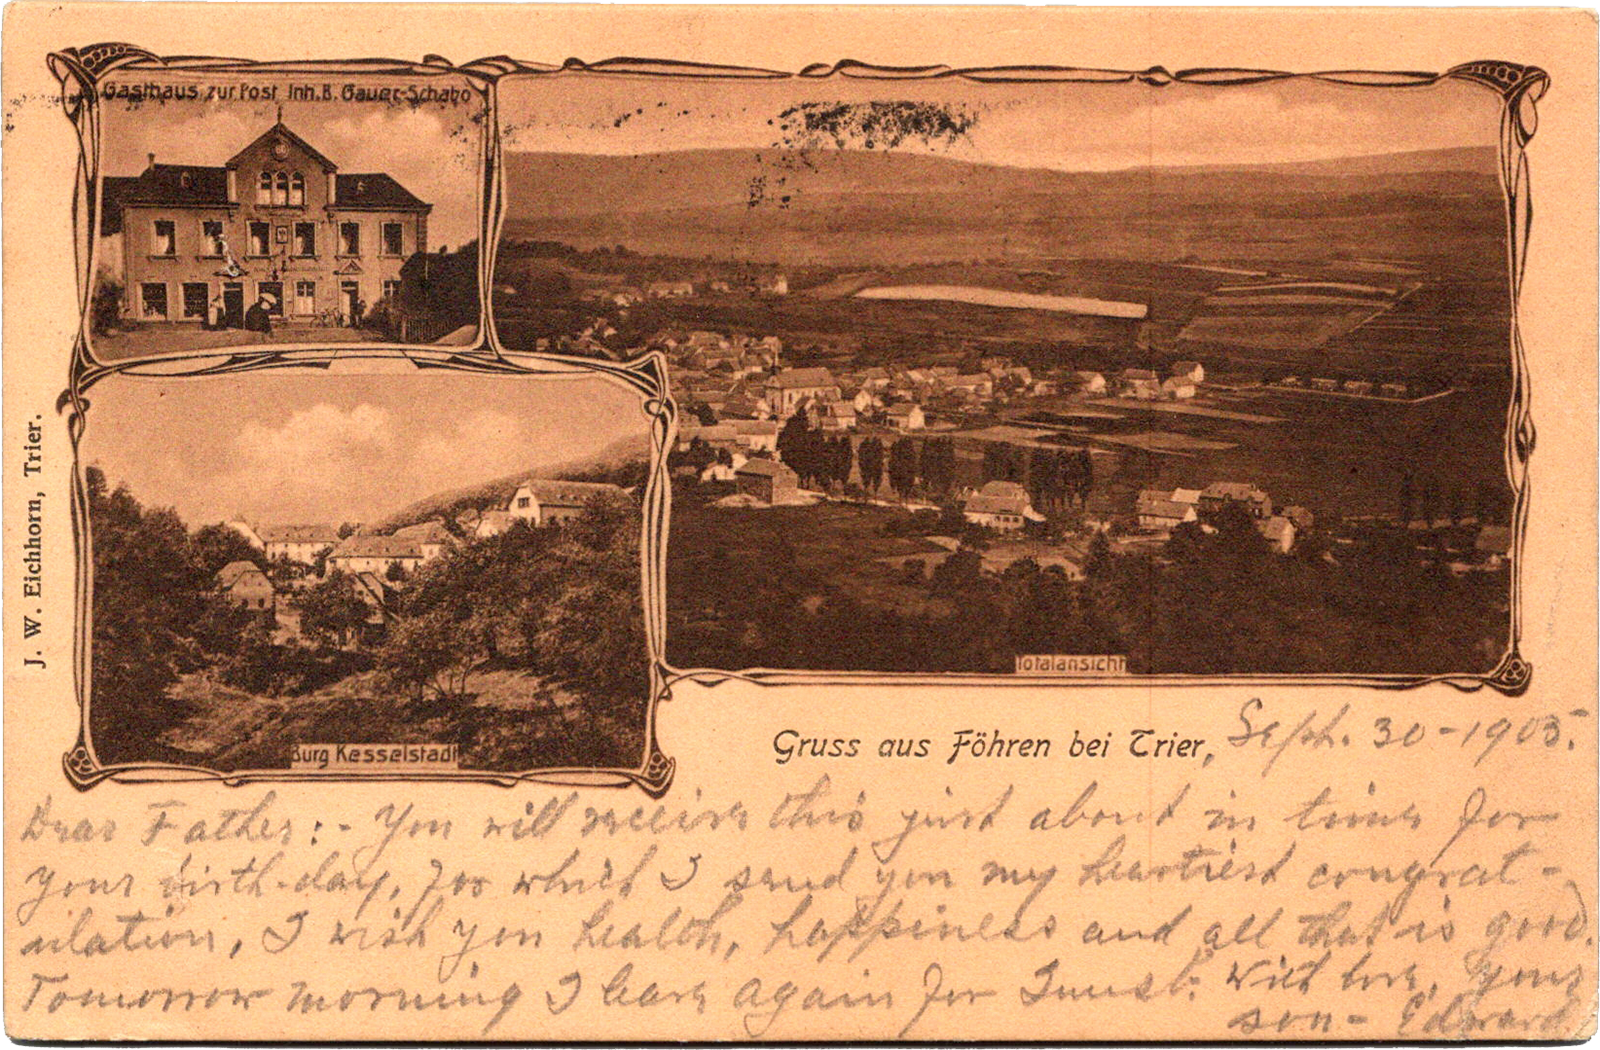 Gasthaus zur Post Inh. B. Gauer-Schabo
J. W. Eichhorn, Trier.
Totalansicht
Burg Kesselstadt
Gruss aus Föhren bei Trier,
Sept. 30-1905.
Dear Father:- You will receive this just about in time for
your birth-day, for which I send you my heartiest congrat-
ulation, I wish you health, happiness and all that is good.
Tomorrow morning I leave again for With love, your
son- Edward